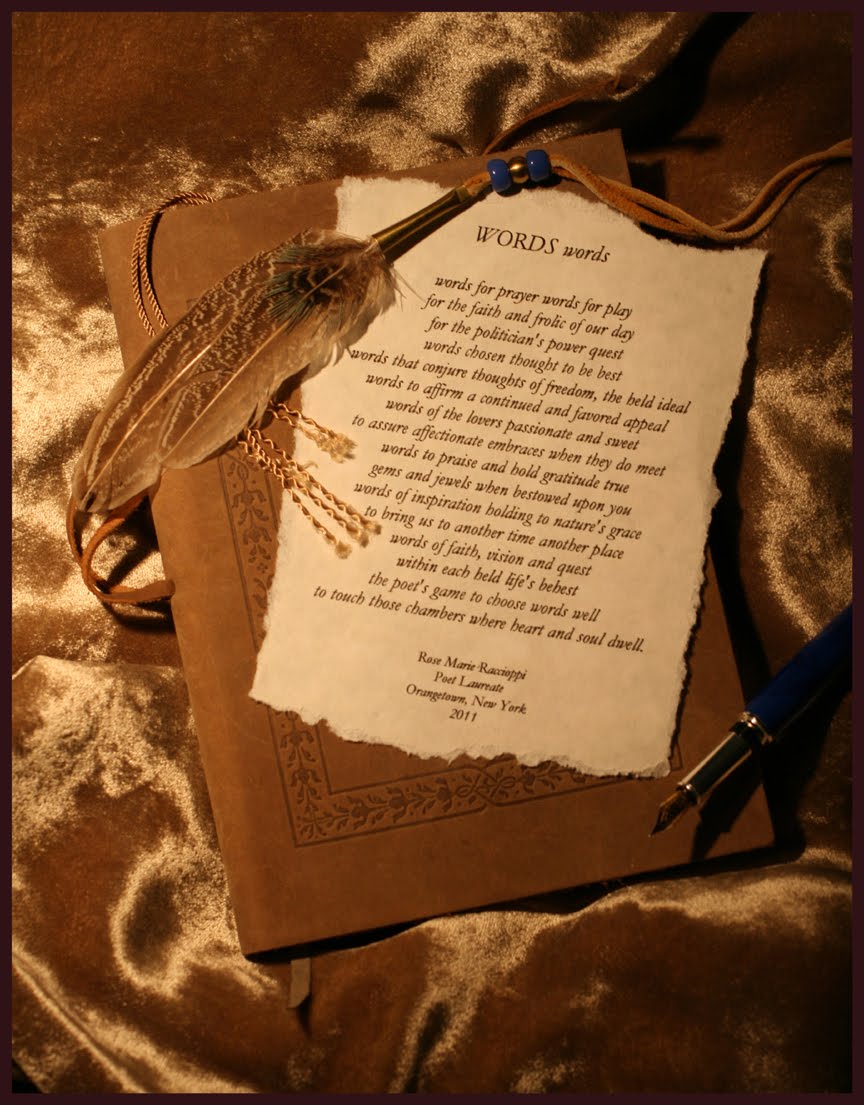 WORDS words
words for prayer words for play
for the faith and frolic of our day
for the politician's power quest
words chosen thought to be best
words that conjure thoughts of freedom, the held ideal
words to affirm a continued and favored appeal
words of the lovers passionate and sweet
to assure affectionate embraces when they do meet
words to praise and hold gratitude true
gems and jewels when bestowed upon you
words of inspiration holding to nature's grace
to bring us to another time another place
words of faith, vision and quest
within each held life's behest
the poet's game to choose words well
to touch those chambers where heart and soul dwell.
Rose Marie Raccioppi
Poet Laureate
Orangetown, New York
2011